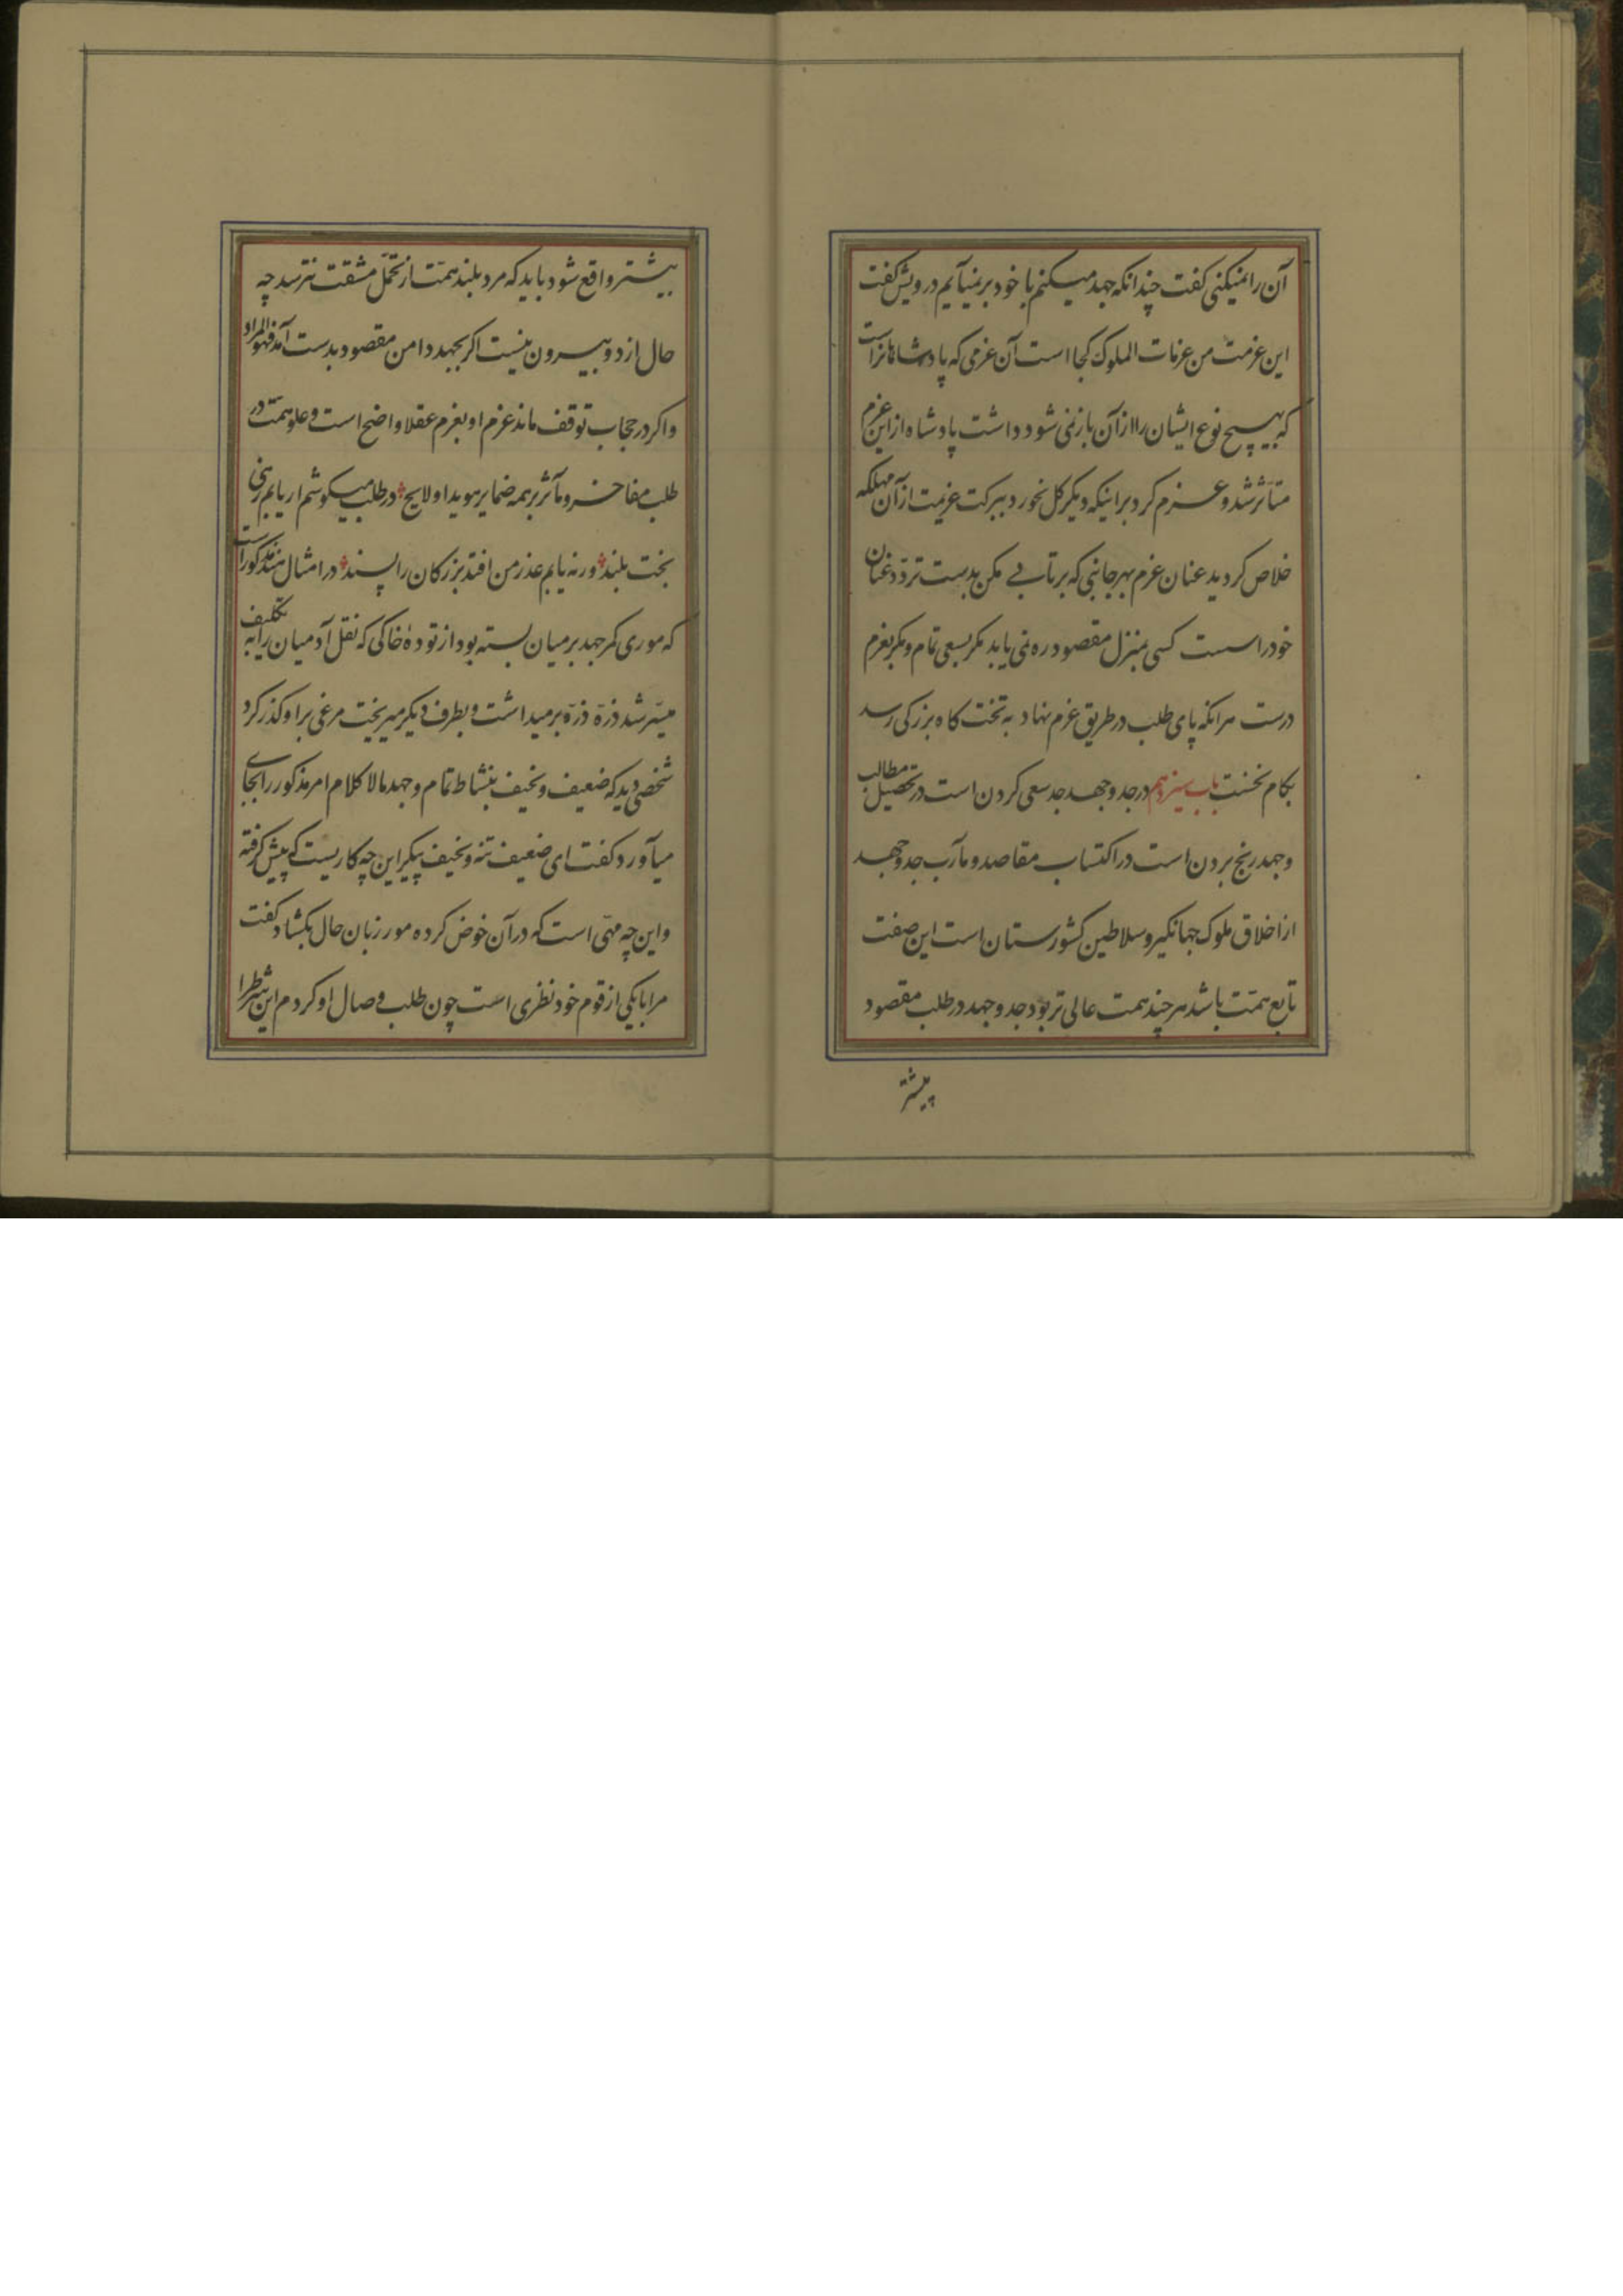 آن را نمیکنی کفت چندانکه جهد میکنم با خود بر نمیآیم درویش کفت
این عزمت من عزمات الملوک کجا است آن عزمی که پادشاهانراست
که بهیچ نوع ایشان را از آن باز نمی شود داشت پادشاه از این عزم
متأثر شد و عزم کرد بر اینکه دیکر کل نخورد ببرکت عزیمت از آن مهلکه
خلاص کردید عنان عزم بهر جانبی که برتابی مکن بدست تردّد عنان
خود را سست کسی بمنزل مقصود ره نمی یابد مکر بسعی تمام و مکر بعزم
درست هر انکه پای طلب در طریق عزم نهاد به تخت کاه بزرکی رسد
بکام نخست باب سیزدهم در جد و جهد جد سعی کردن است در تحصیل مطالب
و جهد رنج بردن است در اکتساب مقاصد و مآرب جد و جهد
از اخلاق ملوک جهانکیر و سلاطین کشورستان است این صفت
تابع همّت باشد هر چند همت عالی تر بود جد و جهد در طلب مقصود
بیشتر
بیشتر واقع شود باید که مرد بلند همّت از تحمّل مشقت نترسد چه
حال از دو بیرون نیست اکر بجهد دامن مقصود بدست آمد فهو المراد
و اکر در حجاب توقف ماند عزم او بعزم عقلا واضح است و علو همّت در
طلب مفاخر و مآثر بر همه ضمایر هویدا و لایح در طلب میکوشم ار یابم زهی
بخت بلند ورنه یابم عذر من افتد بزرکان را پسند در امثال هند مذکور است
که موری کمر جهد بر میان بسته بود از توده خاکی که نقل آدمیان را به تکلیف
میسّر شد ذرّه ذرّه بر میداشت و بطرف دیکر میریخت مرغی بر او کذر کرد
شخصی دید که ضعیف و نحیف بنشاط تمام و جهد مالا کلام امر مذکور را بجای
میآورد کفت ای ضعیف تنه و نحیف پیکر این چه کاریست که پیش کرفته
و این چه مهمّی است که در آن خوض کرده مور زبان حال بکشاد کفت
مرا با یکی از قوم خود نظری است چون طلب وصال او کردم این شرط را